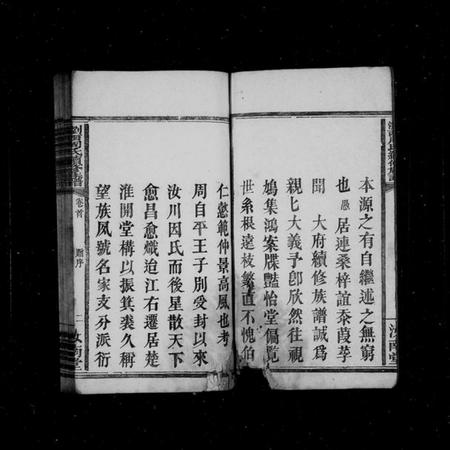 本源之有自繼述之無窮
也愚居連桑梓誼忝葭莩
聞 大府續修族譜誠爲
親匕大義予卽欣然往視
鳩集鴻案牒豔怡堂偏覧
世系根遠枝繁直不愧伯
仁懿範仲景高風也考
周自平王子別受封以來
汝川因氏而後星散天下
愈昌愈熾迨江右遷居楚
淮開堂構以振箕裘久稱
望族夙號名家支分派衍
卷首
序
二
汝南堂
汝南堂